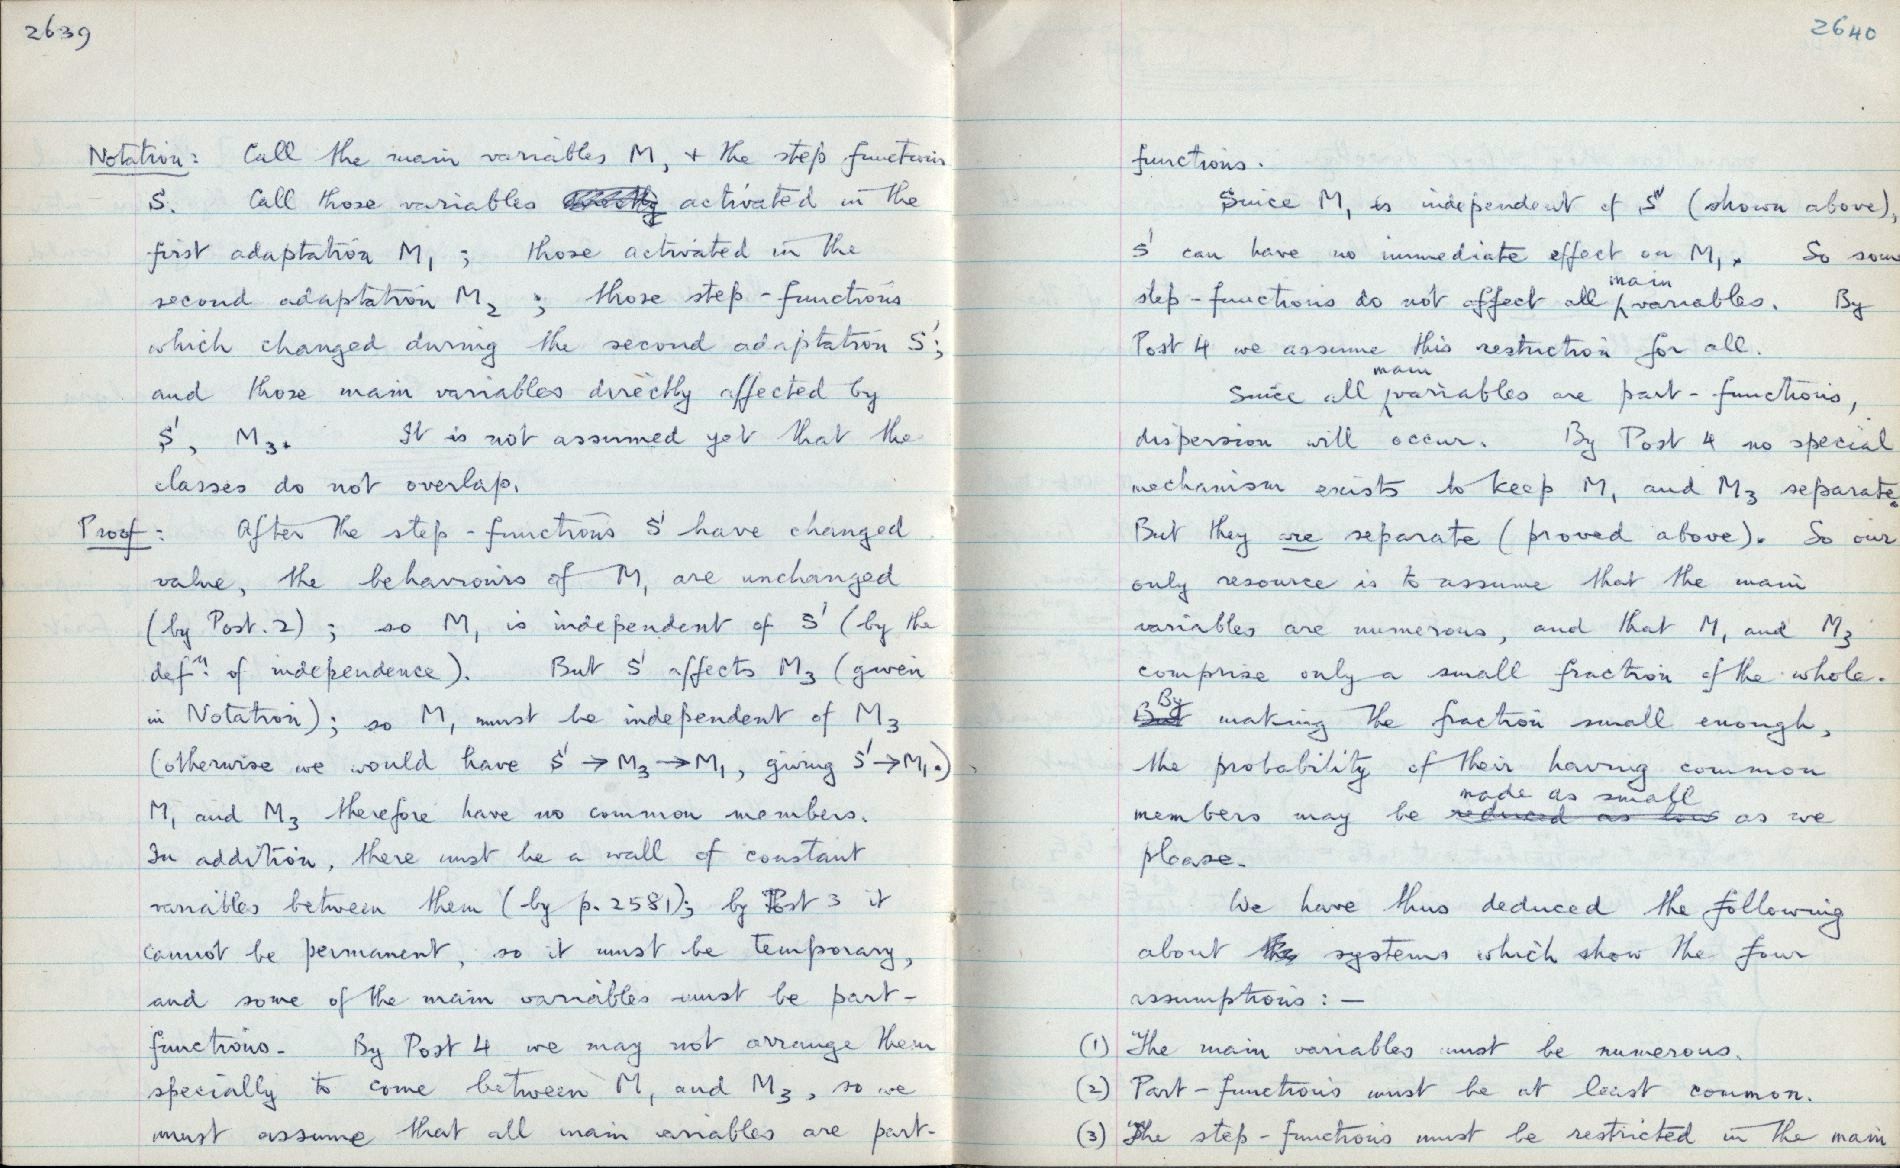 2639
Notation: Call the main variables M, + the step functions
S. Call those variables activated in the
first adaptation M₁; those activated in the
second adaptation M₂; those step-functions
which changed during the second adaptation S';
and those main variables directly affected by
S', M₃. It is not assumed yet that the
classes do not overlap.
Proof: After the step-functions S' have changed
value, the behaviours of M₁ are unchanged
(by Post. 2); so M₁ is independent of S' (by the
defⁿ. of independence). But S' affects M₃ (given
in Notation); so M₁ must be independent of M₃
(otherwise we would have S' → M₃ → M₁, giving S' → M₁.)
M₁ and M₃ therefore have no common members.
In addition, there must be a wall of constant
variables between them (by p. 2581); by Post 3 it
cannot be permanent, so it must be temporary,
and some of the main variables must be part-
functions. By Post 4 we may not arrange them
specially to come between M₁ and M₃, so we
must assume that all main variables are part-
2640
functions.
Since M₁ is independent of S' (shown above),
S' can have no immediate effect on M₁. So some
step-functions do not affect all main variables. By
Post 4 we assume this restriction for all.
Since all main variables are part-functions,
dispersion will occur. By Post 4 no special
mechanism exists to keep M₁ and M₃ separate.
But they are separate (proved above). So our
only resource is to assume that the main
variables are numerous, and that M₁ and M₃
comprise only a small fraction of the whole.
But By making the fraction small enough,
the probability of their having common
members may be reduced as low made as small as we
please.
We have thus deduced the following
about the systems which show the four
assumptions: —
(1) The main variables must be numerous.
(2) Part-functions must be at least common.
(3) The step-functions must be restricted in the main